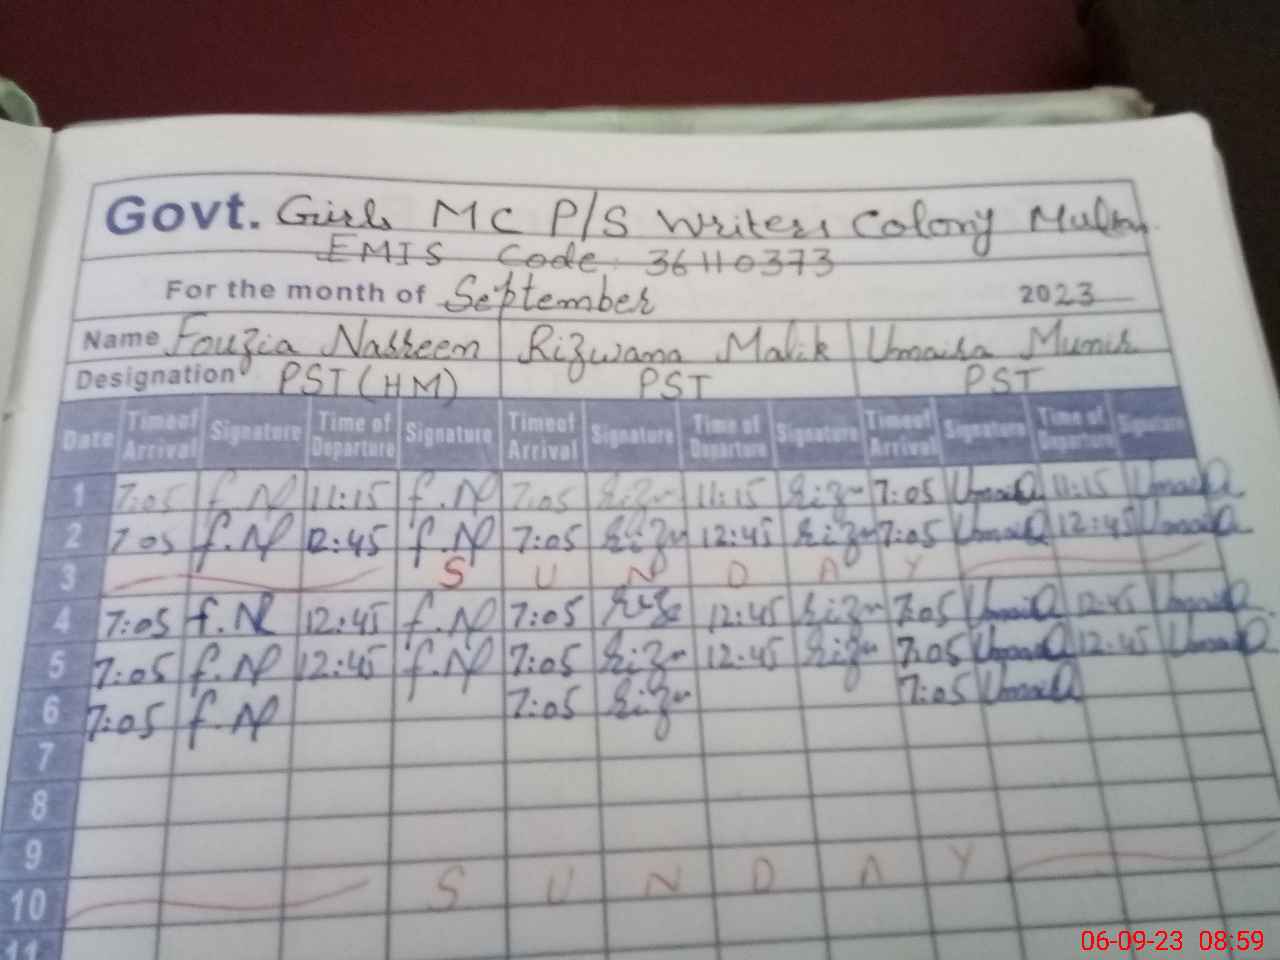 Govt. Girls MC P/S Writers Colony Multan
EMIS Code: 36110373
For the month of September 2023
Name Fouzia Nasreen Rizwana Malik Umaira Munir
Designation PST (HM) PST PST
Date Time of Arrival Signature Time of Departure Signature Time of Arrival Signature Time of Departure Signature Time of Arrival Signature Time of Departure Signature
1 7:05 f.N 11:15 f.N 7:05 11:15 7:05 Umaira 11:15 Umaira
2 7:05 f.N 12:45 f.N 7:05 12:45 7:05 Umaira 12:45 Umaira
3 S U N D A Y
4 7:05 f.N 12:45 f.N 7:05 12:45 7:05 Umaira 12:45 Umaira
5 7:05 f.N 12:45 f.N 7:05 12:45 7:05 Umaira 12:45 Umaira
6 7:05 f.N 7:05 7:05 Umaira
7
8
9
10 S U N D A Y
11
06-09-23 08:59